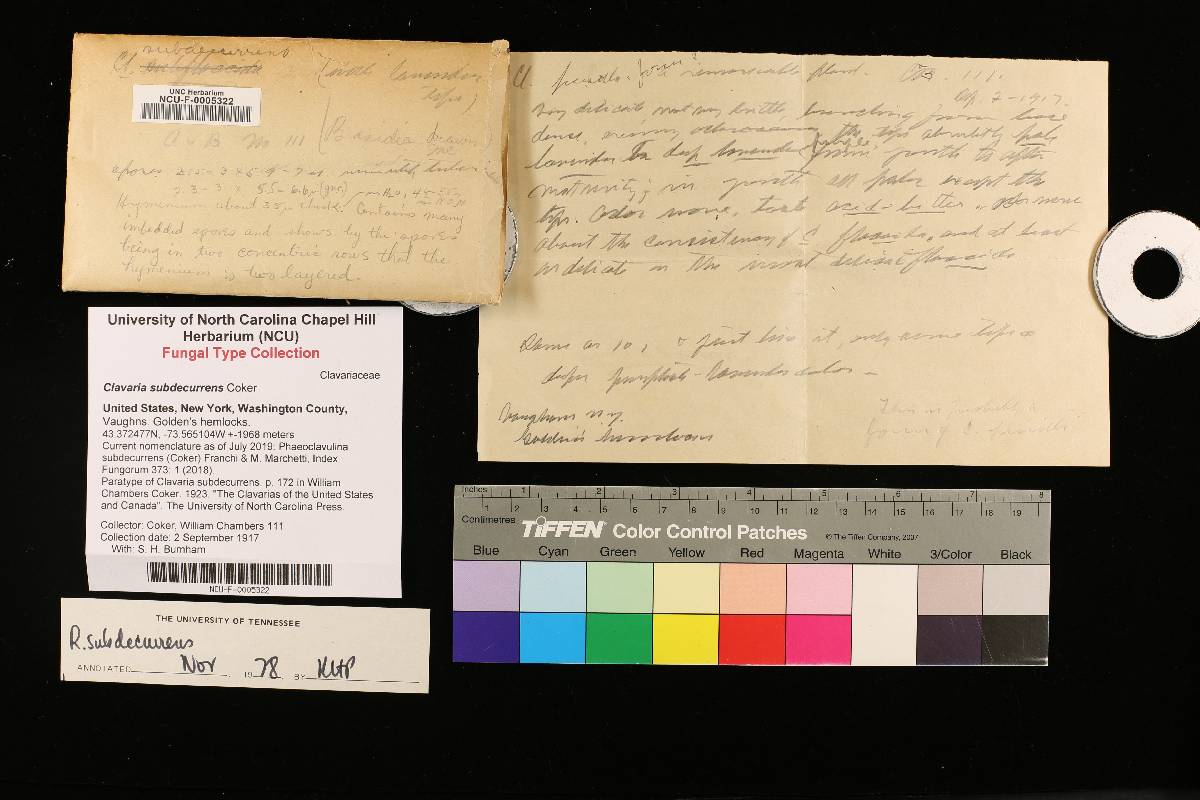 subdecurrens
Cl. (with lavender
tips)
UNC Herbarium
NCU-F-0005322
C & B No 111 (Basidia drawn)
spores
Hymenium about 35µ thick. Contains many
imbedded spores and shows by the spores
being in two concentric rows that the
hymenium is two layered.
Cl. a remarkable plant. C&B. 111.
Sep. 2-1917.
Very delicate, not very brittle, branching from base
dense, creamy the tips abruptly pale
lavender to deep lavender from youth to after
maturity; in youth all pale except the
tips. Odor none, taste acid-bitter
about the consistency of C. flaccida, and at least
as delicate as the most delicate flaccida
Same as 10, & just like it, only some tips a
deeper purplish-lavender color -
Vaughns N.Y.
Golden's hemlocks
This is probably a
form of C.
University of North Carolina Chapel Hill
Herbarium (NCU)
Fungal Type Collection
Clavariaceae
Clavaria subdecurrens Coker
United States, New York, Washington County,
Vaughns. Golden's hemlocks.
43.372477N, -73.565104W +-1968 meters
Current nomenclature as of July 2019: Phaeoclavulina
subdecurrens (Coker) Franchi & M. Marchetti, Index
Fungorum 373: 1 (2018).
Paratype of Clavaria subdecurrens. p. 172 in William
Chambers Coker. 1923. "The Clavarias of the United States
and Canada". The University of North Carolina Press.
Collector: Coker, William Chambers 111
Collection date: 2 September 1917
With: S. H. Burnham
NCU-F-0005322
THE UNIVERSITY OF TENNESSEE
R. subdecurrens
ANNOTATED Nov 1978 BY RHP
Inches 1 2 3 4 5 6 7 8
1 2 3 4 5 6 7 8 9 10 11 12 13 14 15 16 17 18 19
Centimetres
TIFFEN Color Control Patches
© The Tiffen Company, 2007
Blue Cyan Green Yellow Red Magenta White 3/Color Black